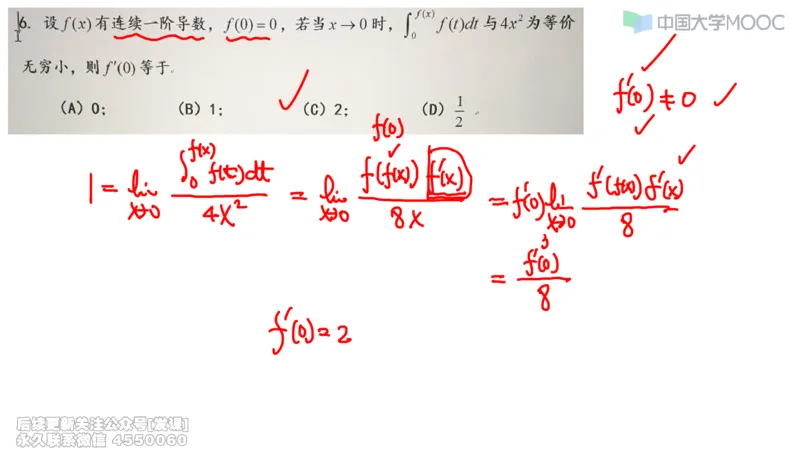 中国大学MOOC
6. 设 f(x) 有连续一阶导数，f(0)=0，若当 x→0 时，∫₀^{f(x)} f(t)dt 与 4x² 为等价
无穷小，则 f′(0) 等于.
(A) 0; (B) 1; (C) 2; (D) 1/2 .
f′(0) ≠ 0
f(0)
1 = lim_{x→0} ∫₀^{f(x)} f(t)dt / 4x² = lim_{x→0} f(f(x)) f′(x) / 8x = f′(0) lim_{x→0} f′(f(x)) f′(x) / 8
= f′³(0) / 8
f′(0) = 2
后续更新关注公众号[发课]
永久联系微信 4550060